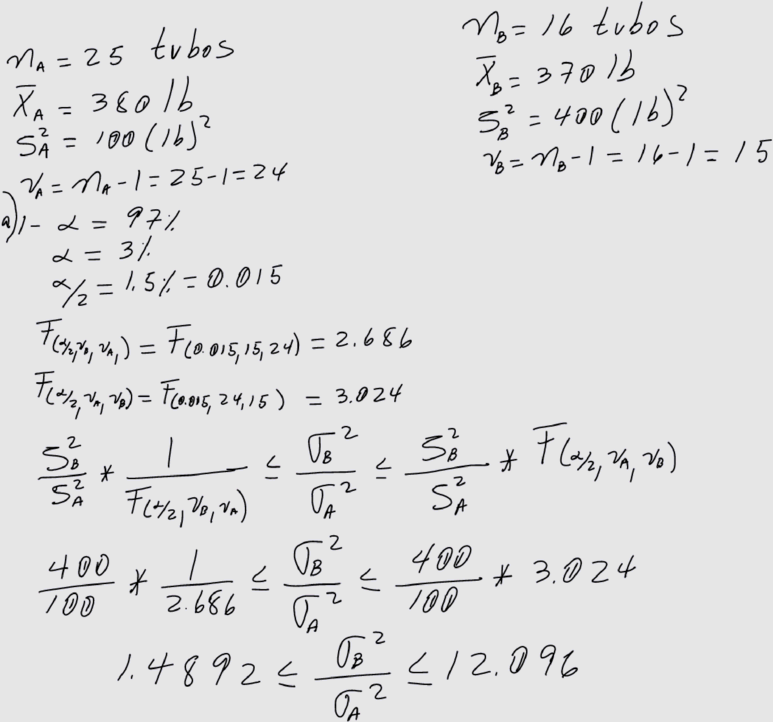 n_A = 25 tubos
X̄_A = 380 lb
S_A^2 = 100 (lb)^2
ν_A = n_A - 1 = 25 - 1 = 24
n_B = 16 tubos
X̄_B = 370 lb
S_B^2 = 400 (lb)^2
ν_B = n_B - 1 = 16 - 1 = 15
a) 1 - α = 97%
α = 3%
α/2 = 1.5% = 0.015
F(α/2, ν_B, ν_A,) = F(0.015, 15, 24) = 2.686
F(α/2, ν_A, ν_B) = F(0.015, 24, 15) = 3.024
S_B^2/S_A^2 * 1/F(α/2, ν_B, ν_A) ≤ σ_B^2/σ_A^2 ≤ S_B^2/S_A^2 * F(α/2, ν_A, ν_B)
400/100 * 1/2.686 ≤ σ_B^2/σ_A^2 ≤ 400/100 * 3.024
1.4892 ≤ σ_B^2/σ_A^2 ≤ 12.096